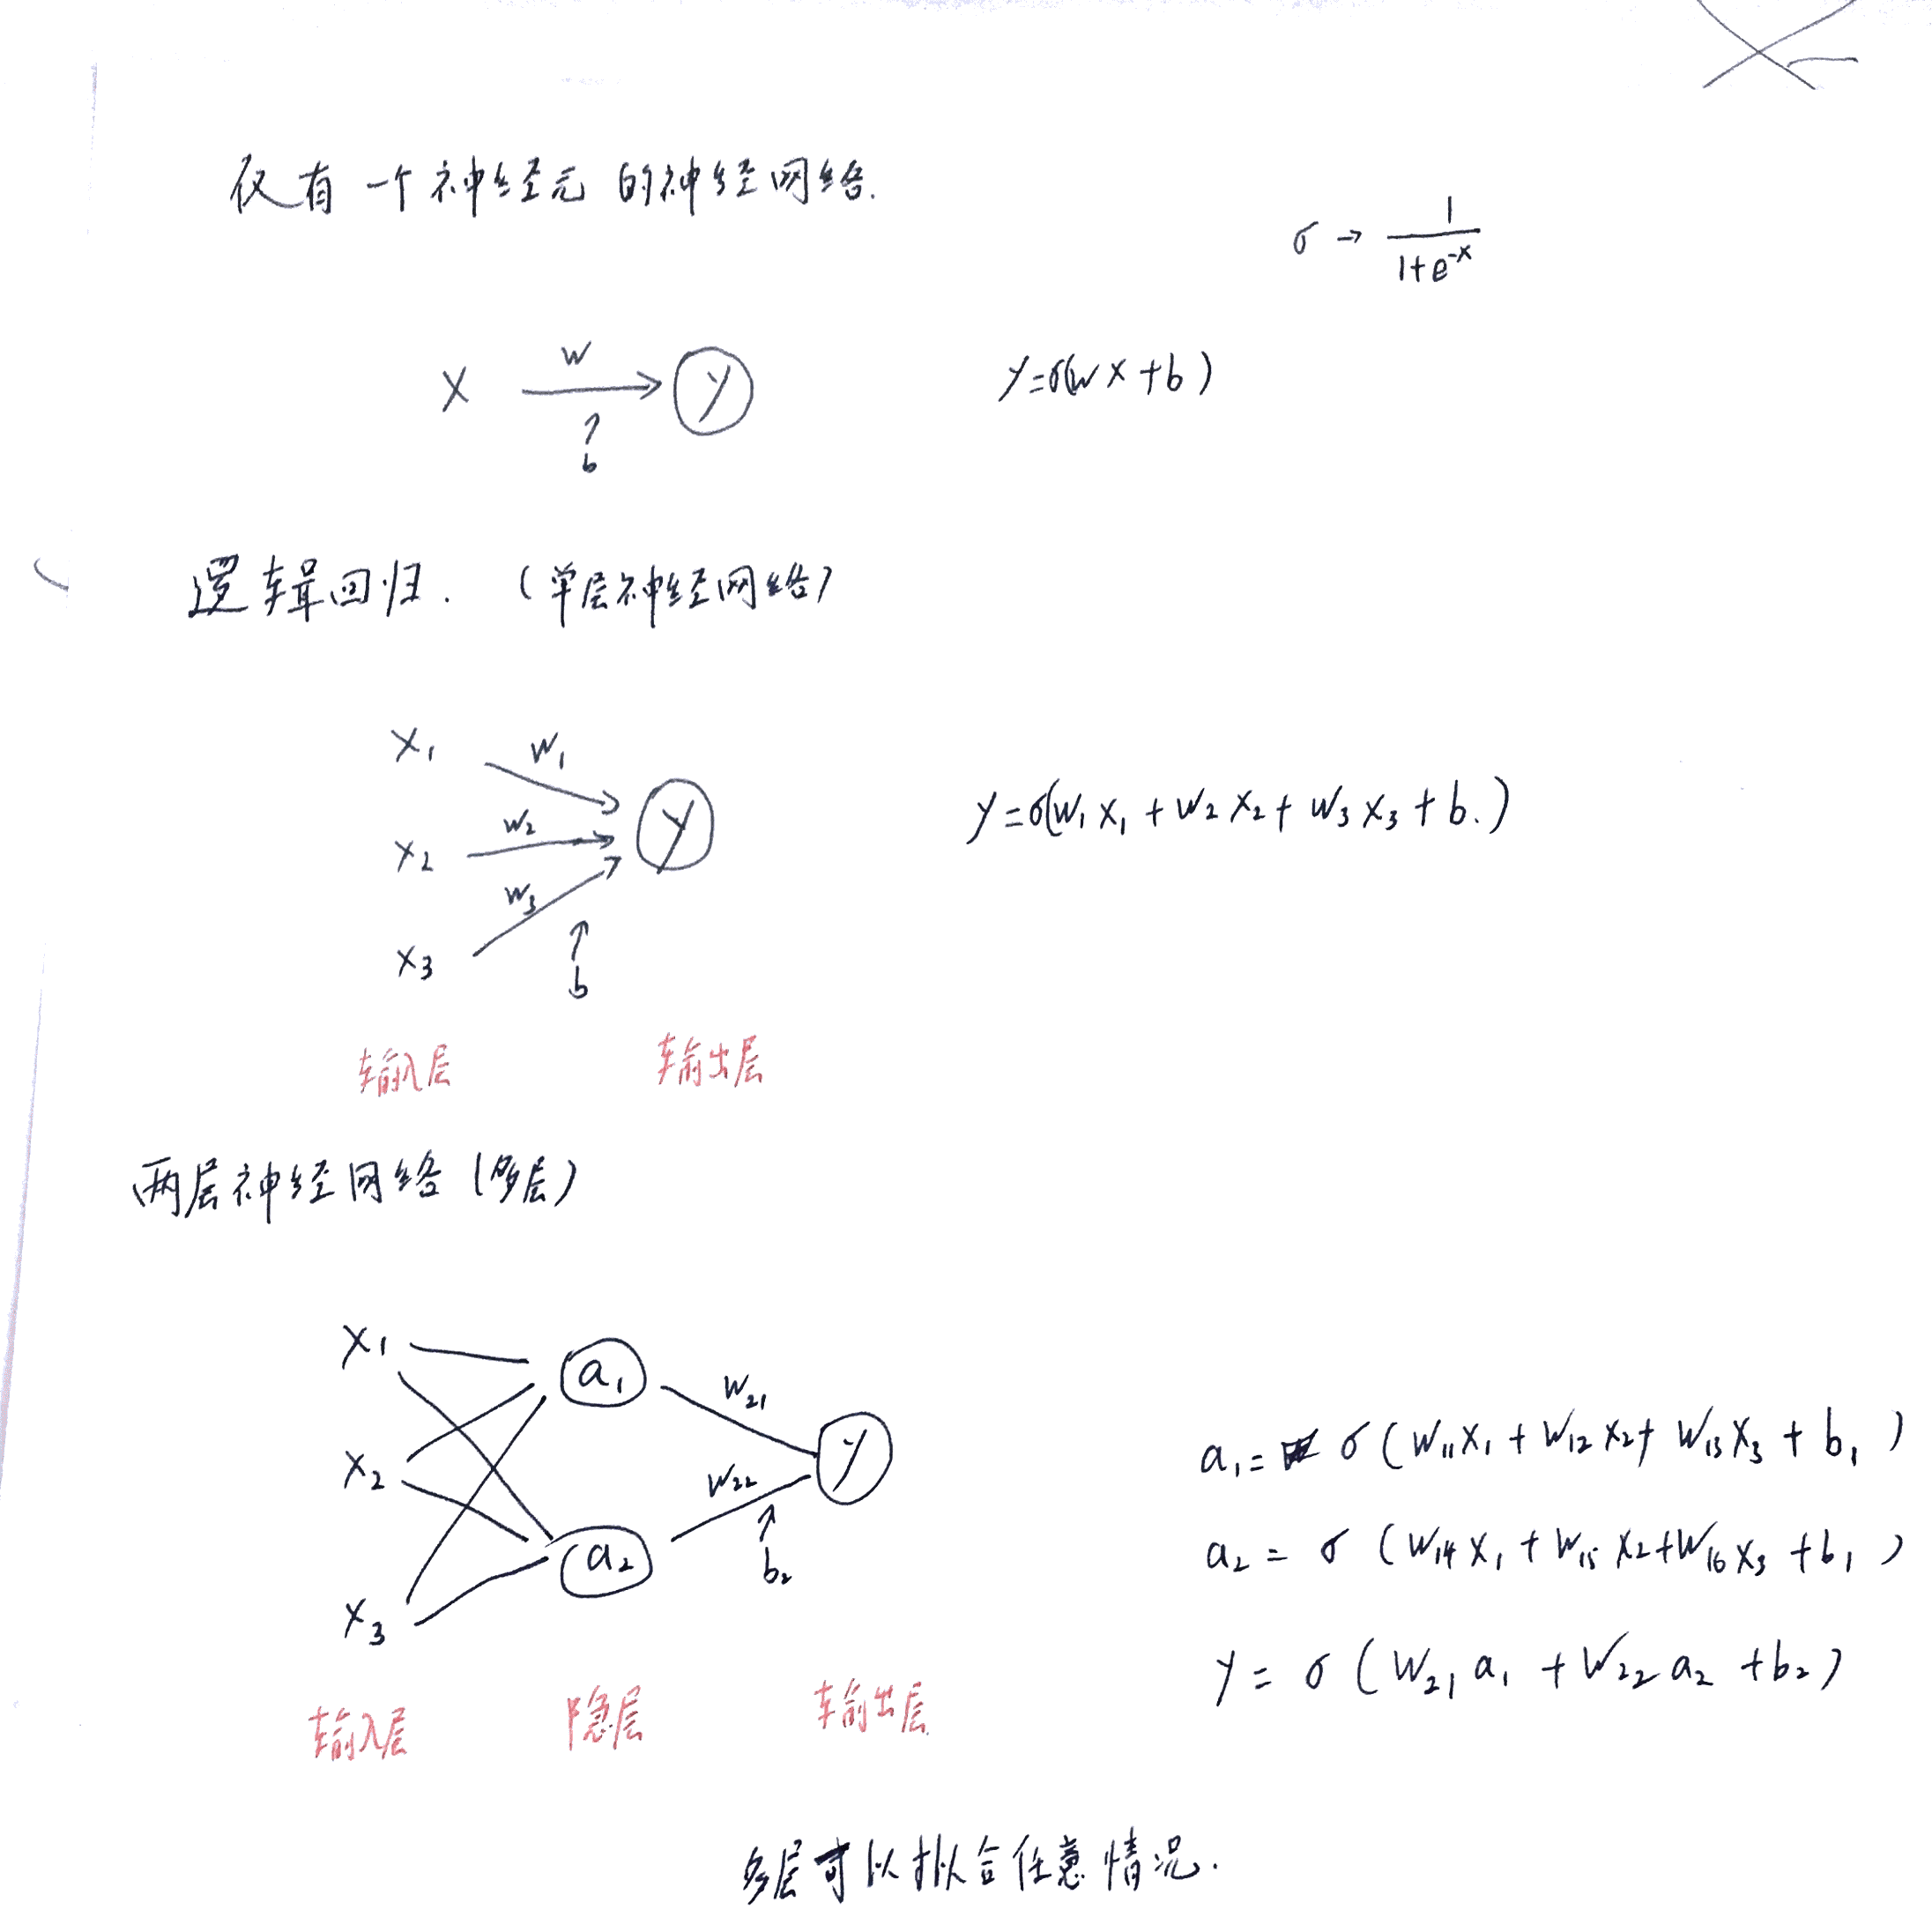 仅有一个神经元的神经网络.
σ → 1/(1+e^-x)
x w y
b
y=σ(wx+b)
逻辑回归. (单层神经网络)
x₁ w₁
x₂ w₂ y
x₃ w₃
b
y=σ(w₁x₁+w₂x₂+w₃x₃+b.)
输入层 输出层
两层神经网络(多层)
x₁ a₁ w₂₁
x₂ w₂₂ y
x₃ a₂ b₂
a₁= σ(w₁₁x₁+w₁₂x₂+w₁₃x₃+b₁)
a₂= σ(w₁₄x₁+w₁₅x₂+w₁₆x₃+b₁)
y= σ(w₂₁a₁+w₂₂a₂+b₂)
输入层 隐层 输出层
多层可以拟合任意情况.